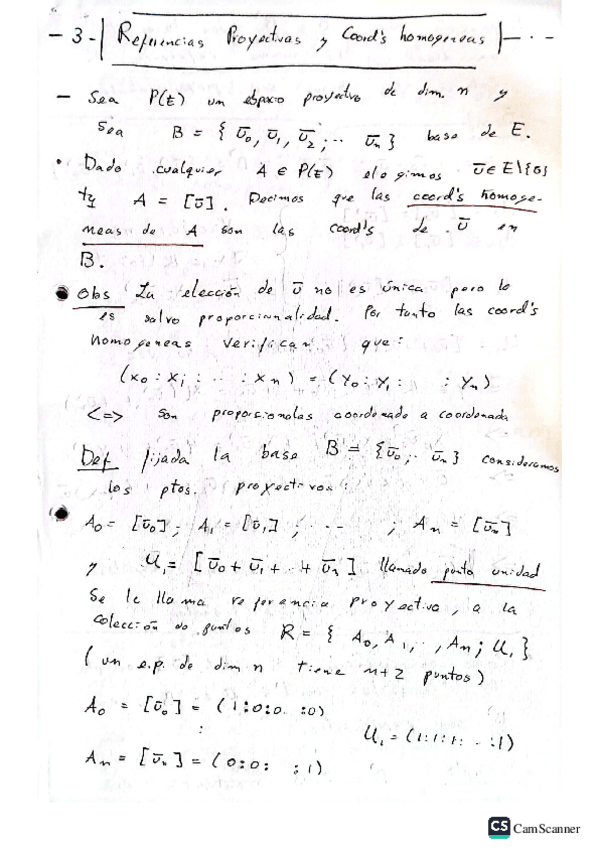 - 3 - | Referencias Proyectivas y Coord's homogeneas | - · -
- Sea P(E) un espacio proyectivo de dim. n y
Sea B = { ū₀, ū₁, ū₂, ·· ūₙ } base de E.
• Dado cualquier A ∈ P(E) elegimos ū ∈ E\{0}
tq A = [ū]. Decimos que las coord's homoge-
neas de A son las coord's de ū en
B.
• Obs La elección de ū no es única pero lo
es salvo proporcionalidad. Por tanto las coord's
homogeneas verifican que:
(x₀ : x₁ : ·· : xₙ) = (y₀ : y₁ : : yₙ)
<=> son proporcionales coordenada a coordenada
Def fijada la base B = {ū₀, ·· ūₙ} consideramos
los ptos. proyectivos:
A₀ = [ū₀] ; A₁ = [ū₁] ; ·-- ; Aₙ = [ūₙ]
y U₁ = [ū₀ + ū₁ + ·· + ūₙ] llamado punto unidad
Se le llama referencia proyectiva, a la
colección de puntos R = { A₀, A₁, ·· , Aₙ ; U₁ }
(un e.p. de dim n tiene n+2 puntos)
A₀ = [ū₀] = (1:0:0 :0)
: U₁ = (1:1:1: ·· :1)
Aₙ = [ūₙ] = (0:0: :1)
CS CamScanner